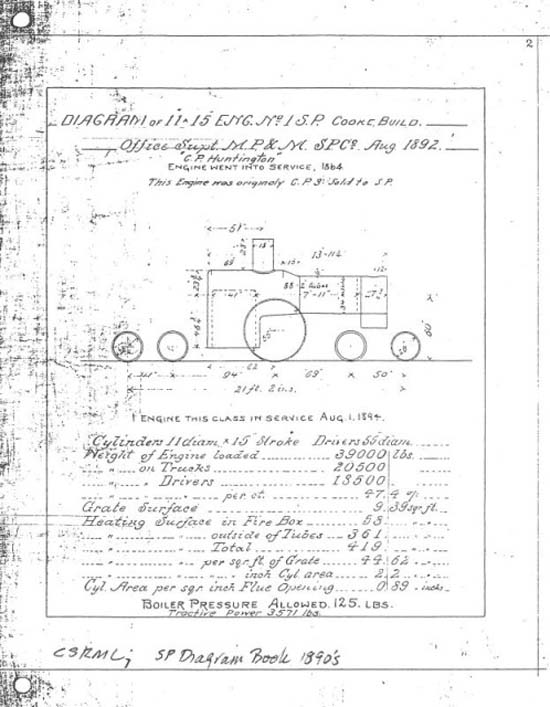 2
DIAGRAM of 11 x 15 ENG. No 1 S.P. COOKE, BUILD.
Office Supt. M.P. & M. S.P.Co. Aug 1892.
"C.P. Huntington"
ENGINE WENT INTO SERVICE, 1864
This Engine was originaly C.P. 3. Sold to S.P.
51"
15"
13'-11¼
12"
41"
7'-11"
55"
26"
62
94"
69"
50"
21 ft. 2 ins.
1 ENGINE THIS CLASS IN SERVICE AUG. 1, 1894.
Cylinders 11 diam. x 15" Stroke Drivers 55 diam.
Weight of Engine loaded 39000 lbs.
" " on Trucks 20500
" " " Drivers 18500
" " " " per ct. 47.4 %
Grate Surface 9.39 sqr. ft.
Heating Surface in Fire Box 58 " "
" " outside of Tubes 361 " "
" " Total 419 " "
" " per sqr ft. of Grate 44.62 " "
" " " inch Cyl area 2.2 " "
Cyl. Area per sqr inch Flue Opening 0.89 " inch
BOILER PRESSURE ALLOWED. 125. LBS.
Tractive Power 3571 lbs.
CSRML; SP Diagram Book 1890's